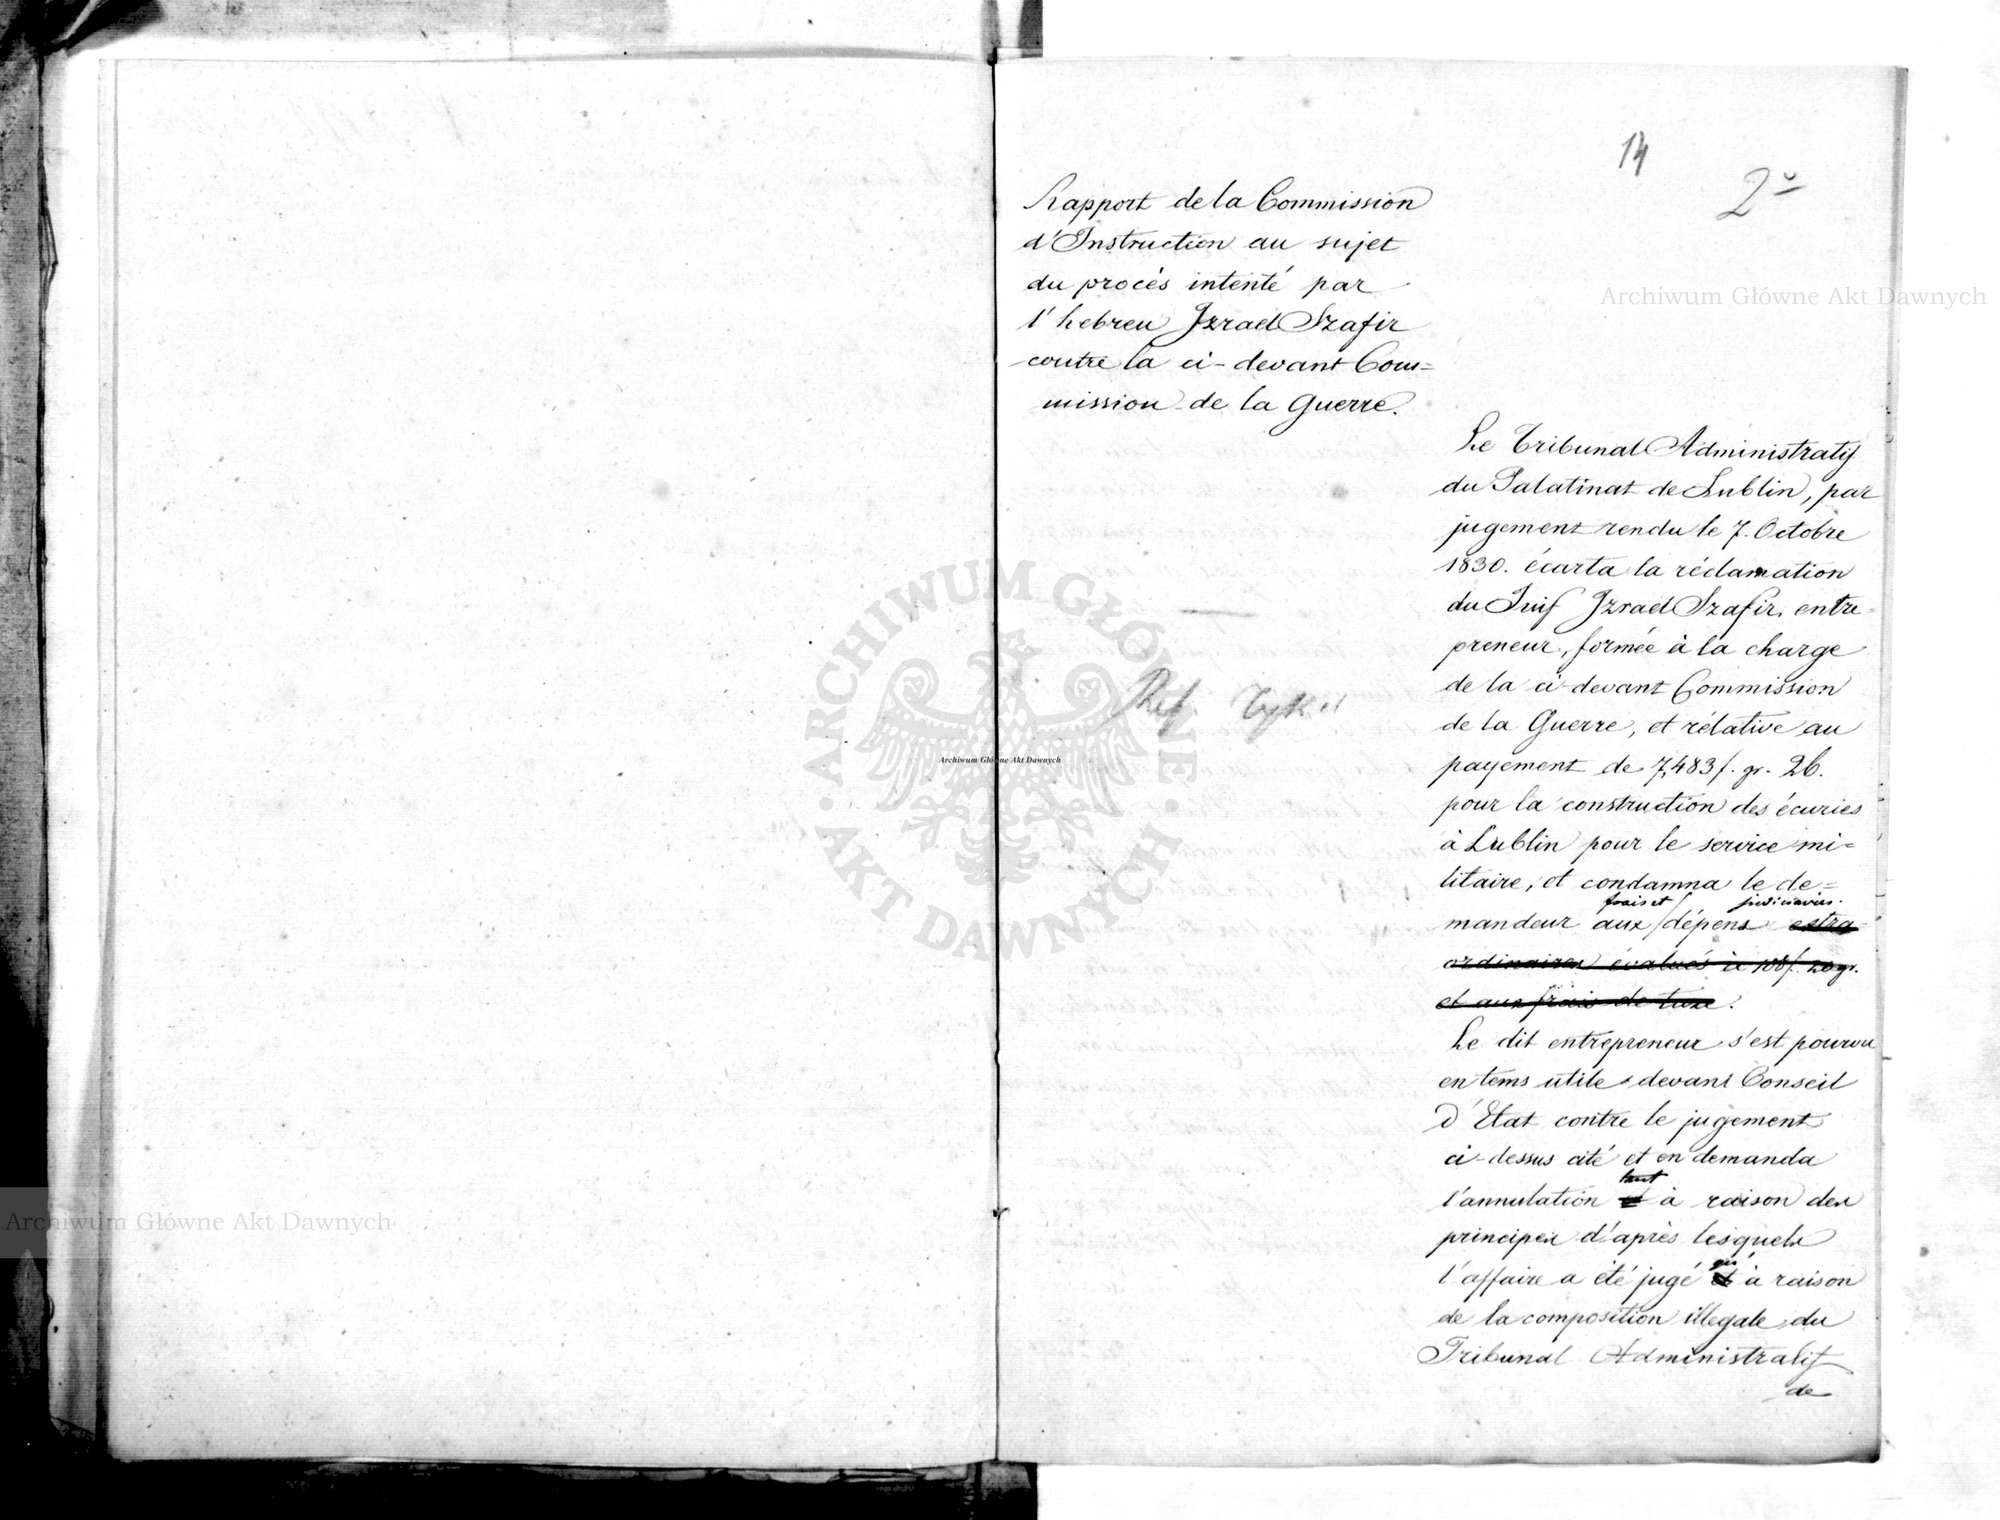 14
2º
Rapport de la Commission
d'Instruction au sujet
du procés intenté par
l'hebreu Izrael Szafir
contre la ci-devant Com=
mission de la Guerre.
Le Tribunal Administratif
du Palatinat de Lublin, par
jugement rendu le 7. Octobre
1830. écarta la réclamation
du Juif Izrael Szafir, entre=
preneur, formée à la charge
de la ci-devant Commission
de la Guerre, et rélative au
payement de 7,483 f. gr. 26.
pour la construction des écuries
à Lublin pour le service mi=
litaire, et condamna le de=
frais et judiciaires.
mandeur aux dépens extra=
ordinaires évalués à 108 f. 20 gr.
et aux frais de taxe.
Le dit entrepreneur s'est pourvu
en tems utile devant Conseil
d'Etat contre le jugement
ci-dessus cité et en demanda
tant
l'annulation et à raison des
principes d'après lesquels
l'affaire a été jugé et à raison
de la composition illegale du
Tribunal Administratif
de
Ref
Archiwum Główne Akt Dawnych
Archiwum Główne Akt Dawnych
Archiwum Główne Akt Dawnych
ARCHIWUM GŁÓWNE
· AKT DAWNYCH ·